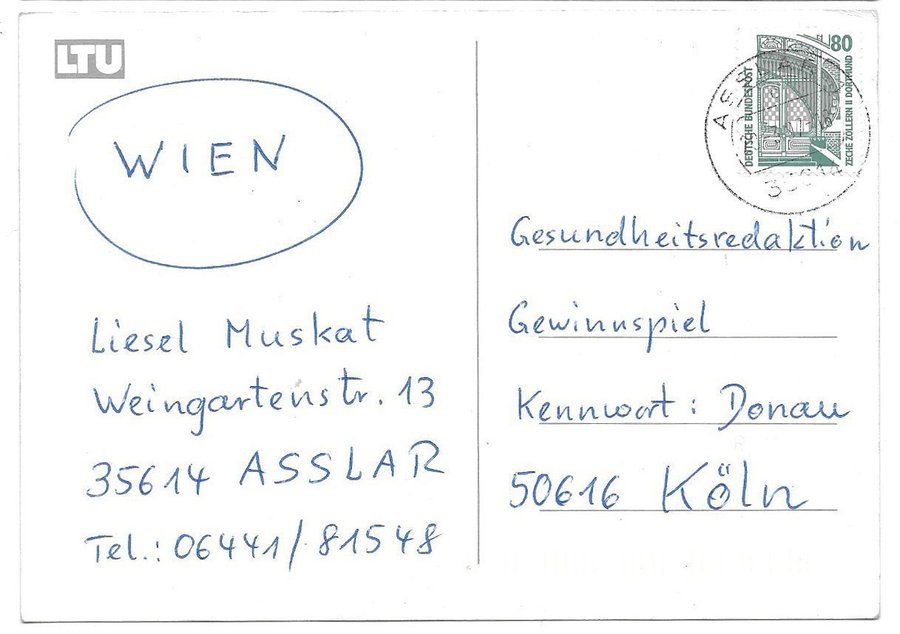 LTU
WIEN
Liesel Muskat
Weingartenstr. 13
35614 ASSLAR
Tel.: 06441/81548
80
DEUTSCHE BUNDESPOST
ZECHE ZOLLERN II DORTMUND
ASSLAR
35614
Gesundheitsredaktion
Gewinnspiel
Kennwort: Donau
50616 Köln